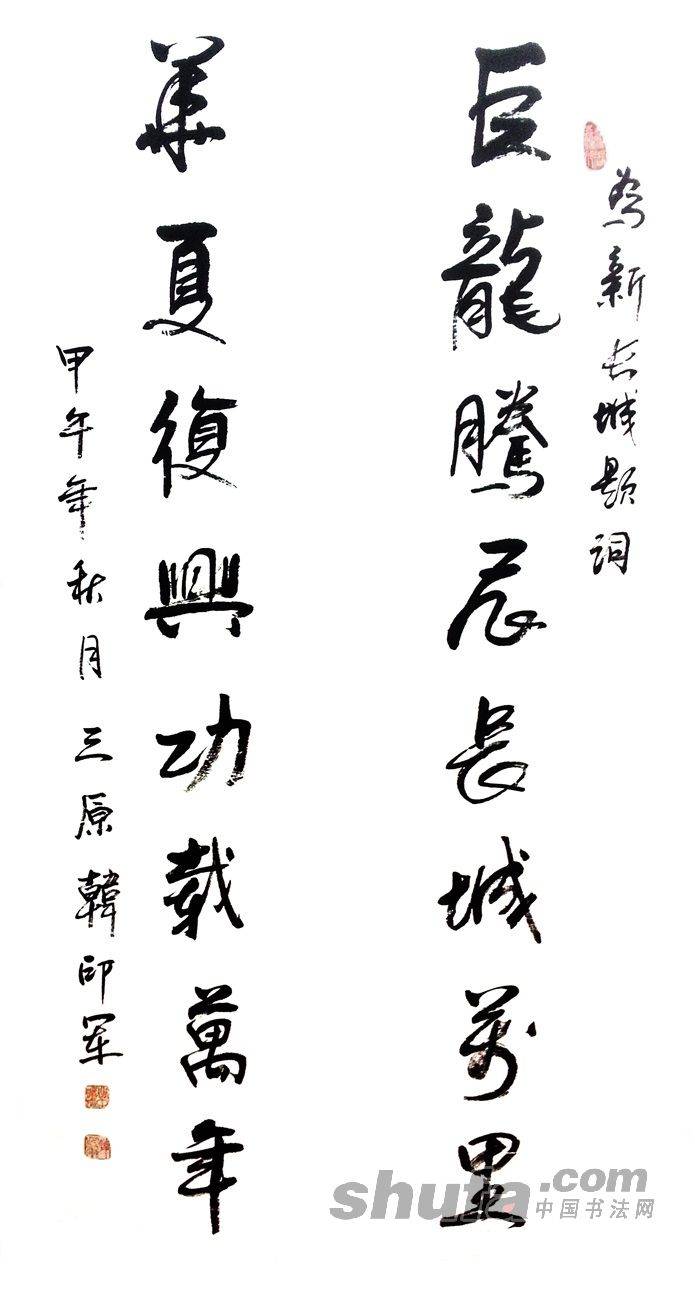 為新长城題詞
巨龍騰飛长城萬里
華夏復興功載萬年
甲午年秋月三原韓印军
shufa.com
中国书法网